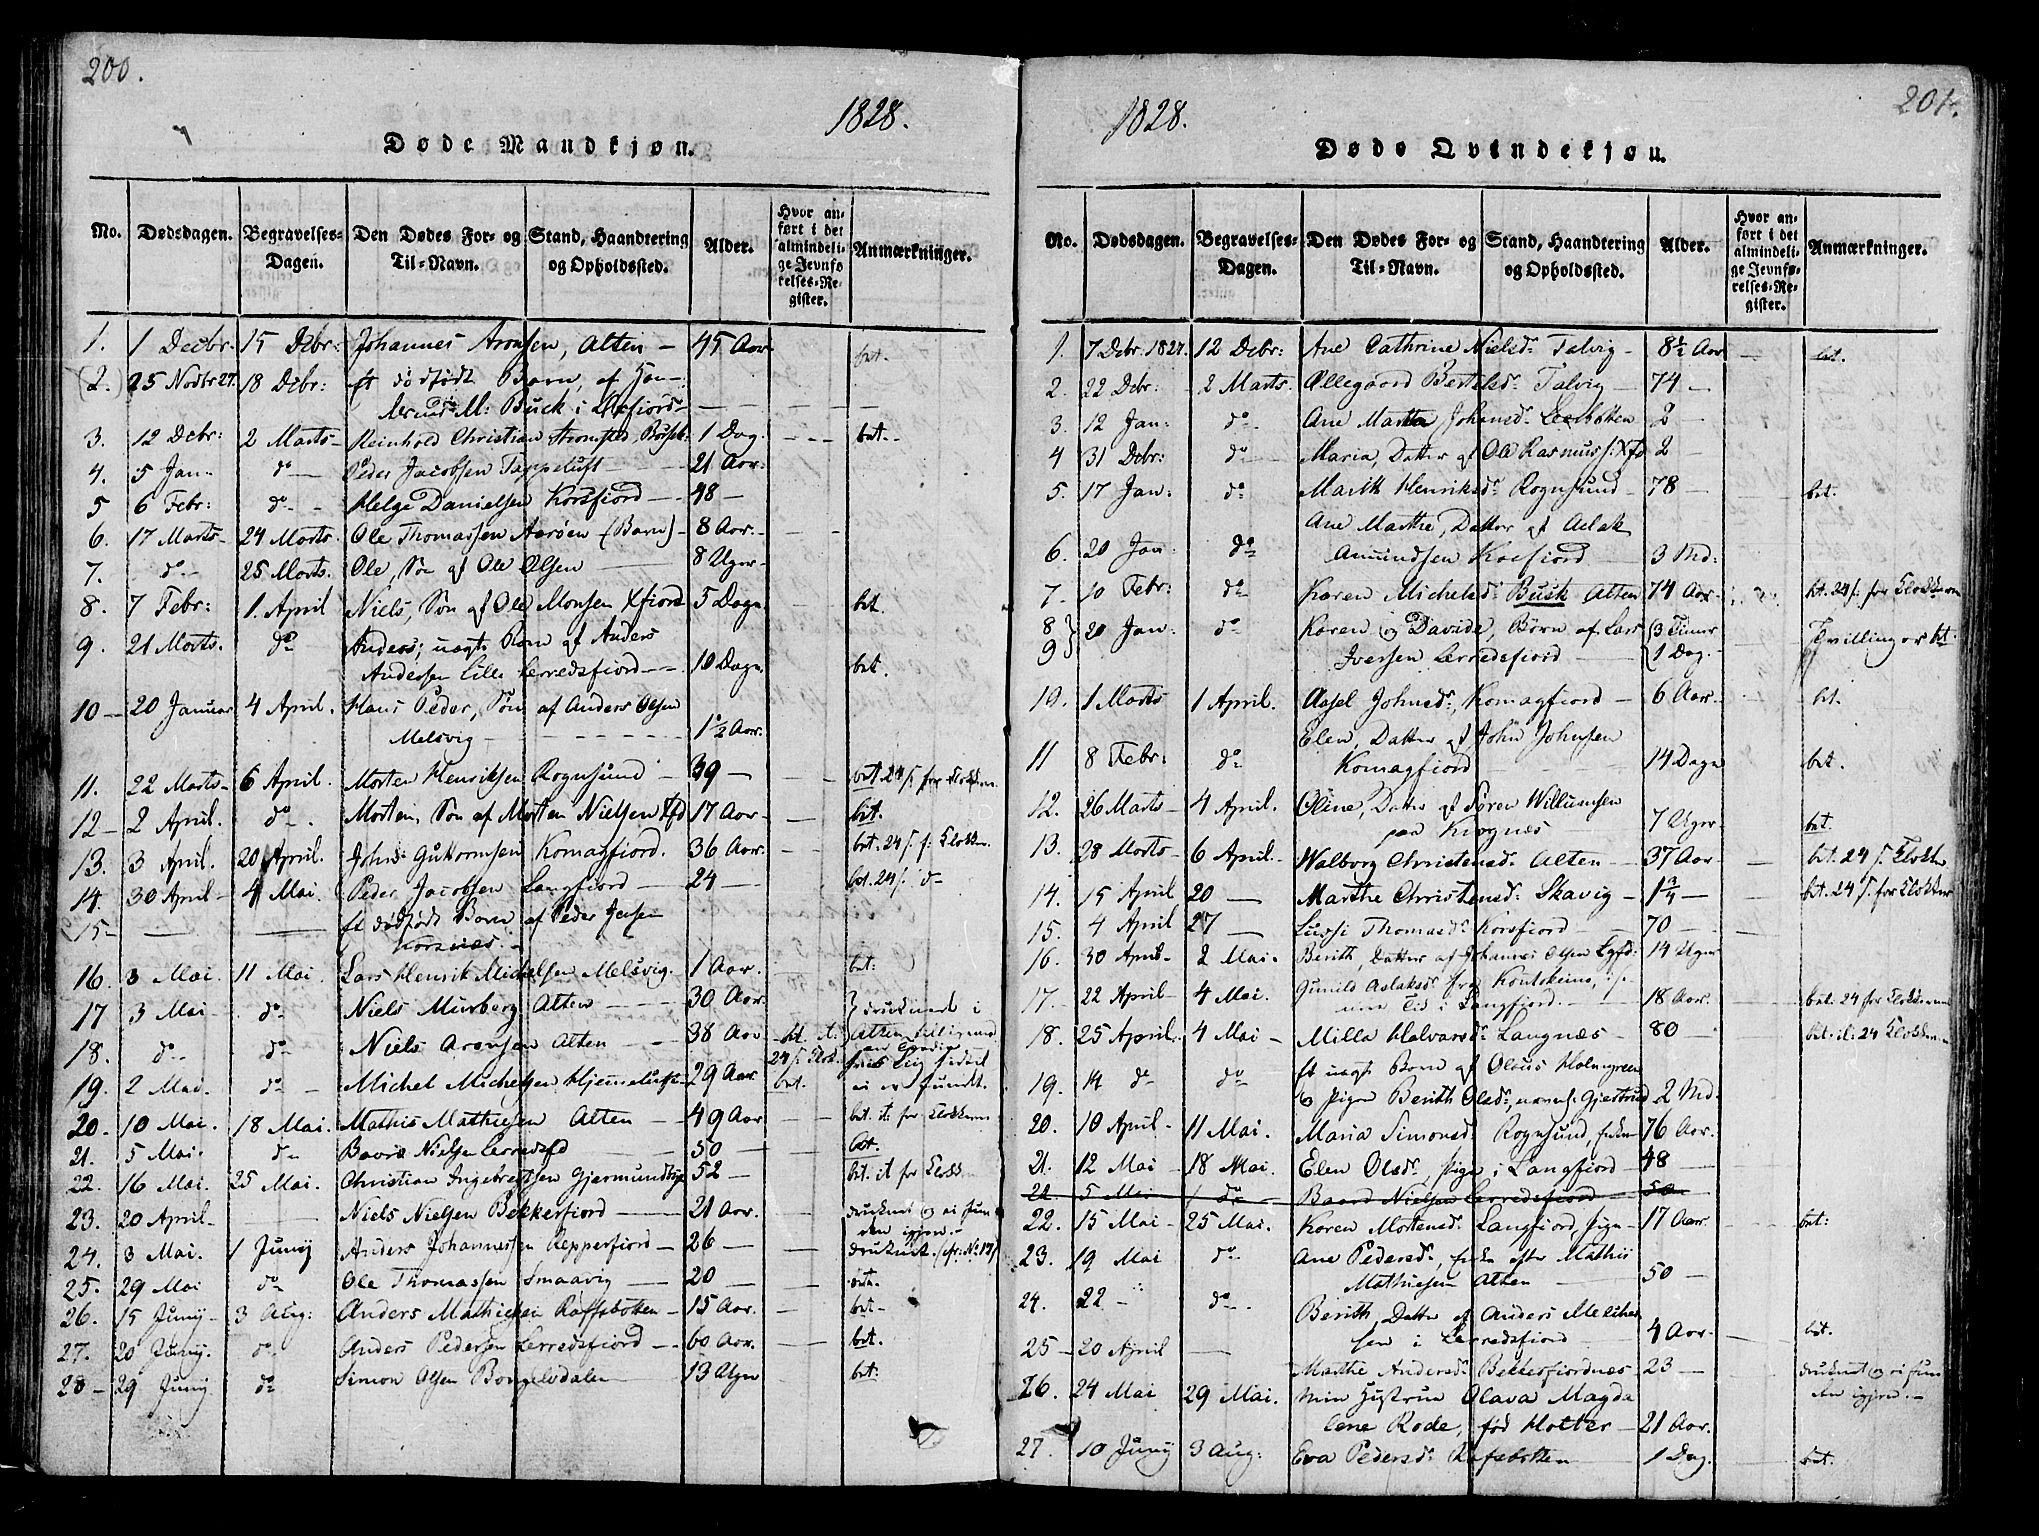 200.
1828.
Døde Mandkjøn.
No. Dødsdagen. Begravelses-Dagen. Den Dødes For- og Til-Navn. Stand, Haandtering og Opholdssted. Alder. Hvor anført i det almindelige Jevnførelses-Register. Anmærkninger.
1. 1 Decbr. 15 Debr: Johannes Aronsen, Alten - 45 Aar bet.
(2.) 25 Novbr 27. 18 Debr: Et dødfødt Barn, af
M: Buck i Oxfiord
3. 12 Debr: 2 Marts - Reinhold Christian 1 Dag. bet.
4. 5 Jan - do - Peder Jacobsen Tappeluft - 21 Aar:
5 6 Febr: do - Helge Danielsen Korsfiord - 48 -
6. 17 Marts - 24 Marts. Ole Thomassen Aarøen (Barn) - 8 Aar.
7. do - 25 Marts. Ole, Søn af Ole Olsen 8 Uger
8. 7 Febr: 1. April Niels, Søn af Ole Monsen Xfiord 5 Dage bet.
9. 21 Marts. do Anders, uægt. Barn af Anders
Andersen Lille Lerredsfiord - 10 Dage bet.
10 - 20 Januar 4 April. Hans Peder, Søn af Anders Olsen
Melsvig - 1½ Aar.
11. 22 Marts - 6 April. Morten Henriksen Rognsund - 39 - bet. 24 s. for Klokkeren
12 - 2 April. do - Morten, Søn af Morten Nielsen Xfd 17 Aar - bet.
13. 3 April. 20 April. John Guttormsen Komagfiord. 36 Aar: bet. 24 s. f: Klokken.
14. 30 April - 4 Mai. Peder Jacobsen Langfiord - 24 - bet. 24 s. do
15 - Et dødfødt Barn af Peder Jensen
Korsnæs. -
16. 3 Mai. 11 Mai. Lars Henrik Michelsen Melsvig. 1 Aar. bet:
17 3 Mai - do - Niels Murberg Alten - 30 Aar. druknet i
18. do - do - Niels Aronsen Alten - 38 Aar bet. Alten
19. 2 Mai. do - Michel Michelsen Hjemeluft 29 Aar. bet. ei er fundt.
20. 10 Mai. 18 Mai. Mathis Mathiesen Alten - 49 Aar bet. it. for Klokkeren
21. 5 Mai. do Baard Nielsen Lerredsfd 50 - bet.
22. 16 Mai. 25 Mai. Christian Ingebretsen 52 - bet. it for Klokk
23. 20 April - Niels Nielsen Bekkerfiord - 21 Aar. druknet og ei fun
den igjen. -
24. 3 Mai. 1 Junij Anders Johannesen Repperfiord - 26 - druknet. (cfr. No 17)
25. 29 Mai do - Ole Thomassen Smaavig - 20 - bet.
26. 15 Junij - 3 Aug: Anders Mathiesen Rafsbotten - 15 Aar. bet -
27. 20 Junij. do - Anders Pedersen Lerredsfiord - 60 Aar. bet.
28 - 29 Junij do Simon Olsen 13 Uger bet:
201.
1828.
Døde Qvindekjøn.
No. Dødsdagen. Begravelses-Dagen. Den Dødes For- og Til-Navn. Stand, Haandtering og Opholdssted. Alder. Hvor anført i det almindelige Jevnførelses-Register. Anmærkninger.
1. 7 Debr. 1827. 12 Debr: Ane Cathrine Nielsd. Talvig - 8½ Aar bet.
2. 22 Debr: - 2 Marts. Ollegaard Bertelsd. Talvig - 74 -
3. 12 Jan: do - Ane Martha Johansd. 2 -
4 31 Debr: do - Maria, Datter af Ole Rasmuss: Xfd 2 -
5. 17 Jan: do - Marith Henriksd. Rognsund - 78 bet.
Ane Marthe, Datter af Aslak
6. 20 Jan: do Amundsen Korsfiord - 3 Md:
7 - 10 Febr: do Karen Michelsd. Busk Alten 74 Aar bet. 24 s. for Klokkeren
8
9 } 20 Jan: do - Karen og Davida, Børn af Lars { 3 Timer
Iversen Lerredsfiord { 1 Dag. Tvillinger bet.
10. 1 Marts 1 April. Aasel Johnsd., Komagfiord - 6 Aar. bet.
Elen, Datter af John Johnsen
11 8 Febr: do Komagfiord - 14 Dage bet.
12. 26 Marts - 4 April. Oline, Datter af Søren Willumsen
paa 7 Uger bet.
13. 28 Marts - 6 April - Walborg Christensd. Alten - 37 Aar - bet. 24 s. Klokkn
14. 15 April 20 - Marthe Christensd: Skavig - 1¾ - bet. 24 s. for Klokken
15. 4 April 27 - Lussi Thomasd. Korsfiord - 70 -
16. 30 April - 2 Mai. Berith, Datter af Johannes Olsen Lgfd: 14 Uger
17. 22 April - 4 Mai. Gunild Aslaksd. fra Koutokeino,
Tid i Langfiord. - 18 Aar. bet. 24 for Klokkeren
18. 25 April. 4 Mai - Milla Halvarsd. Langnæs - 80 - bet. it: 24 Klokkeren
19. 14 do do - Et uægt. Barn af Olaus Holmgreen
og Pigen Berith Olsd., 2 Md:
20. 10 April - 11 Mai. Maria Simonsd. Rognsund, Enke 76 Aar.
21. 12 Mai - 18 Mai. Elen Olsd. Pige i Langfiord - 48 -
21 5 Mai do Baard Nielsen Lerredsfiord 50
22. 15 Mai - 25 Mai. Karen Mortensd. Langfiord, Pige - 17 Aar. bet:
23. 19 Mai do - Ane Pedersd., Enke efter Mathis
Mathiesen Alten - 50 -
24. 22 - do - Berith, Datter af Anders
sen i Lerredsfiord 4 Aar - bet.
25 - 20 April - Marthe Andersd. Bekkerfiordnæs - 23 - druknet og ei fun
den igjen. -
26. 24 Mai 29 Mai. Min Hustrue Olava Magda
lene Rode, fød Holter - 21 Aar.
27. 10 Junij 3 Aug: Eva Pedersd. Rafsbotten 1 Dag. bet.